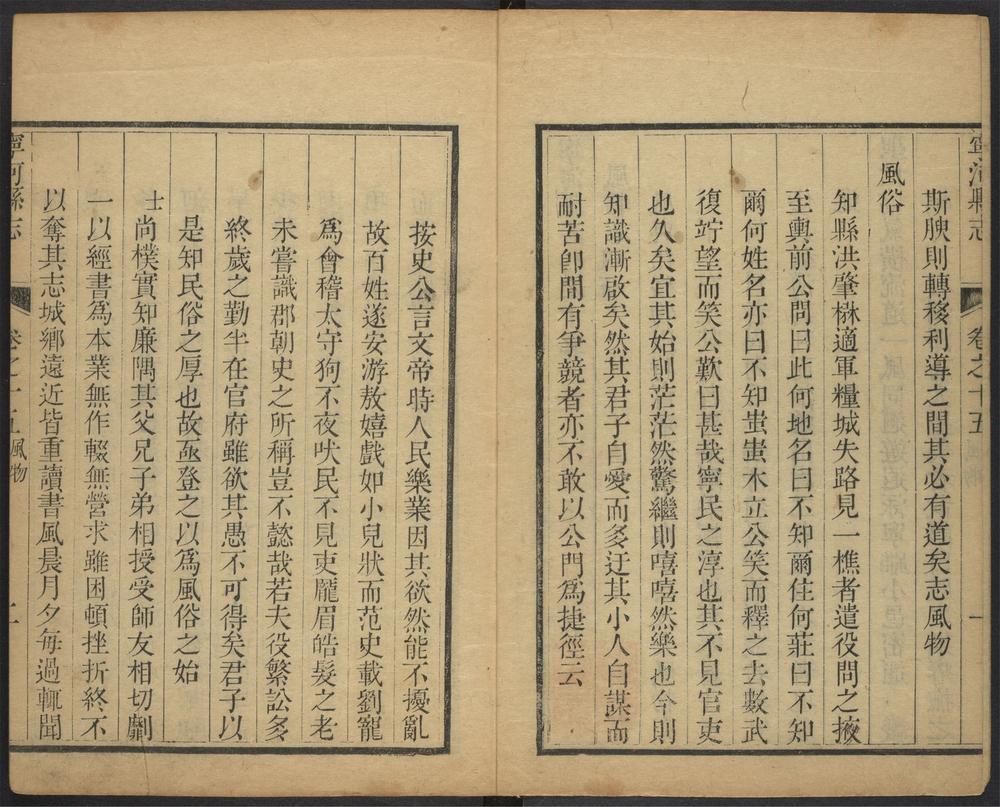 寧河縣志
卷之十五
一
斯腴則轉移利導之間其必有道矣志風物
風俗
知縣洪肇楙適軍糧城失路見一樵者遣役問之掖
至輿前公問曰此何地名曰不知爾住何莊曰不知
爾何姓名亦曰不知蚩蚩木立公笑而釋之去數武
復竚望而笑公歎曰甚哉寧民之淳也其不見官吏
也久矣宜其始則茫茫然驚繼則嘻嘻然樂也今則
知識漸啟矣然其君子自愛而多迂其小人自謀而
耐苦卽間有爭競者亦不敢以公門爲捷徑云
按史公言文帝時人民樂業因其欲然能不擾亂
故百姓遂安游敖嬉戲如小兒狀而范史載劉寵
爲會稽太守狗不夜吠民不見吏龐眉皓髮之老
未嘗識郡朝史之所稱豈不懿哉若夫役繁訟多
終歲之勤半在官府雖欲其愚不可得矣君子以
是知民俗之厚也故亟登之以爲風俗之始
士尚樸實知廉隅其父兄子弟相授受師友相切劘
一以經書爲本業無作輟無營求雖困頓挫折終不
以奪其志城鄉遠近皆重讀書風晨月夕每過輒聞
寧河縣志
卷之十五風物
二